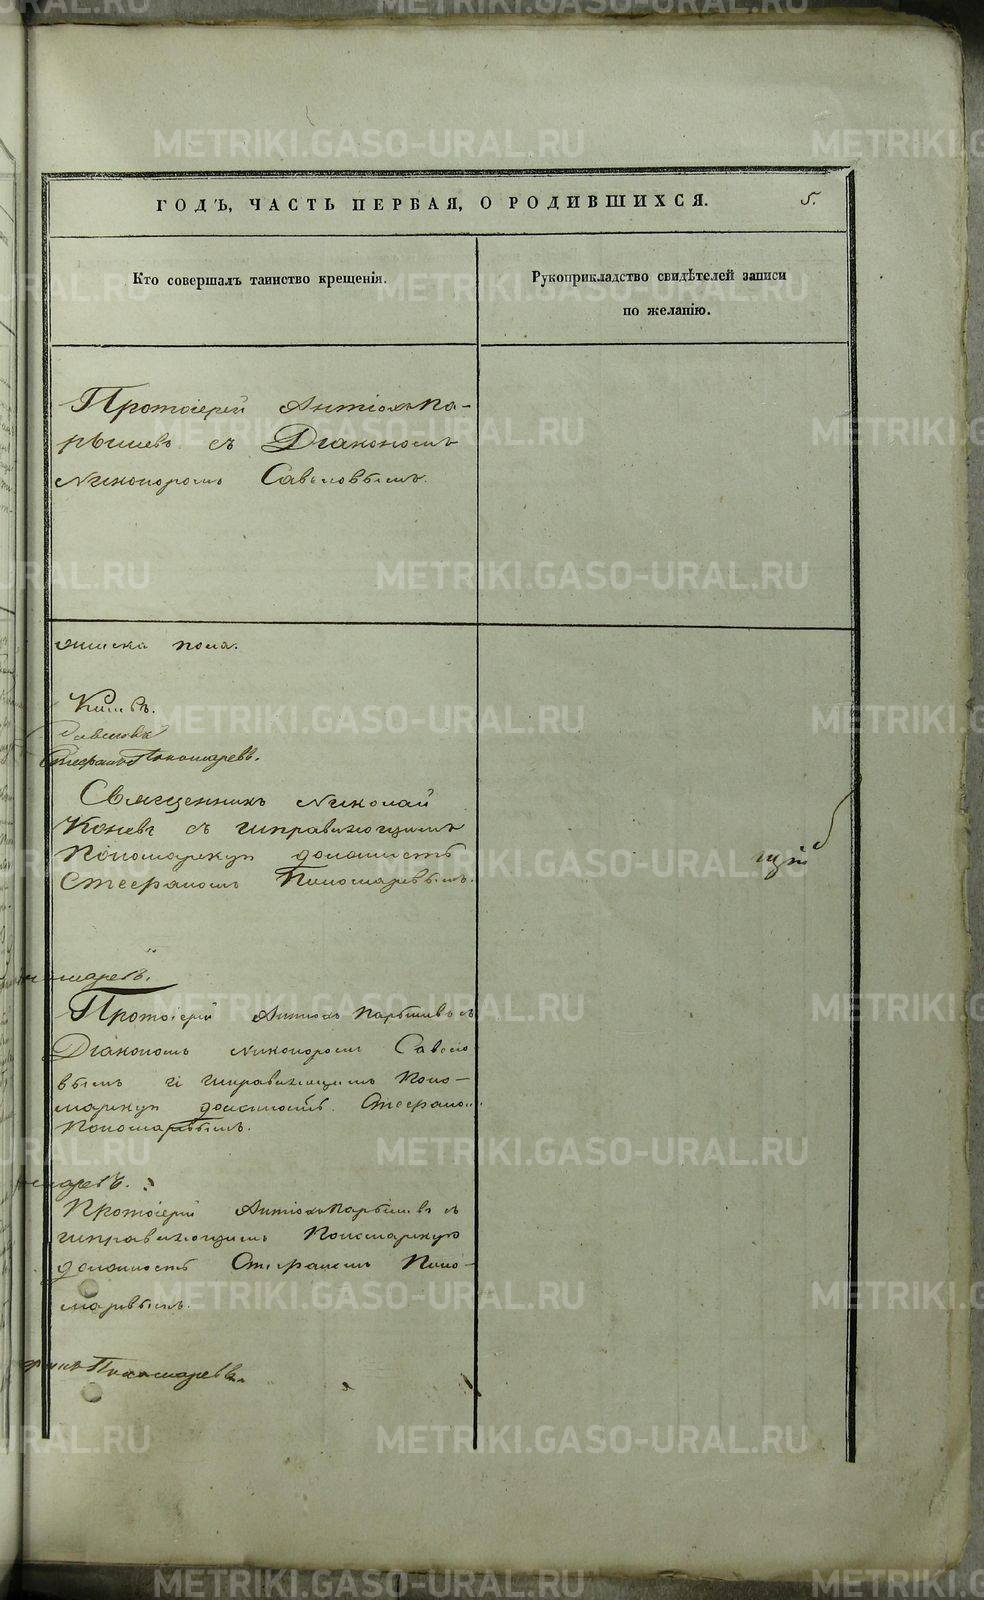 ГОДЪ, ЧАСТЬ ПЕРВАЯ, О РОДИВШИХСЯ. 5.
Кто совершалъ таинство крещенія.
Рукоприкладство свидѣтелей записи
по желанію.
Протоіерей Антіохъ Па-
рышевъ съ Діакономъ
Никоноромъ Савеловымъ.
Священникъ Николай
Коневъ съ исправляющимъ
Пономарскую должность
Стефаномъ Пономаревымъ.
Протоіерей Антіохъ Парышевъ съ
Діакономъ Никоноромъ Савело-
вымъ и исправляющимъ Поно-
марскую должность Стефаном
Пономаревымъ.
Протоіерей Антіохъ Парышевъ съ
исправляющимъ Пономарскую
должность Стефаномъ Поно-
маревымъ.
Пономаревъ.
METRIKI.GASO-URAL.RU